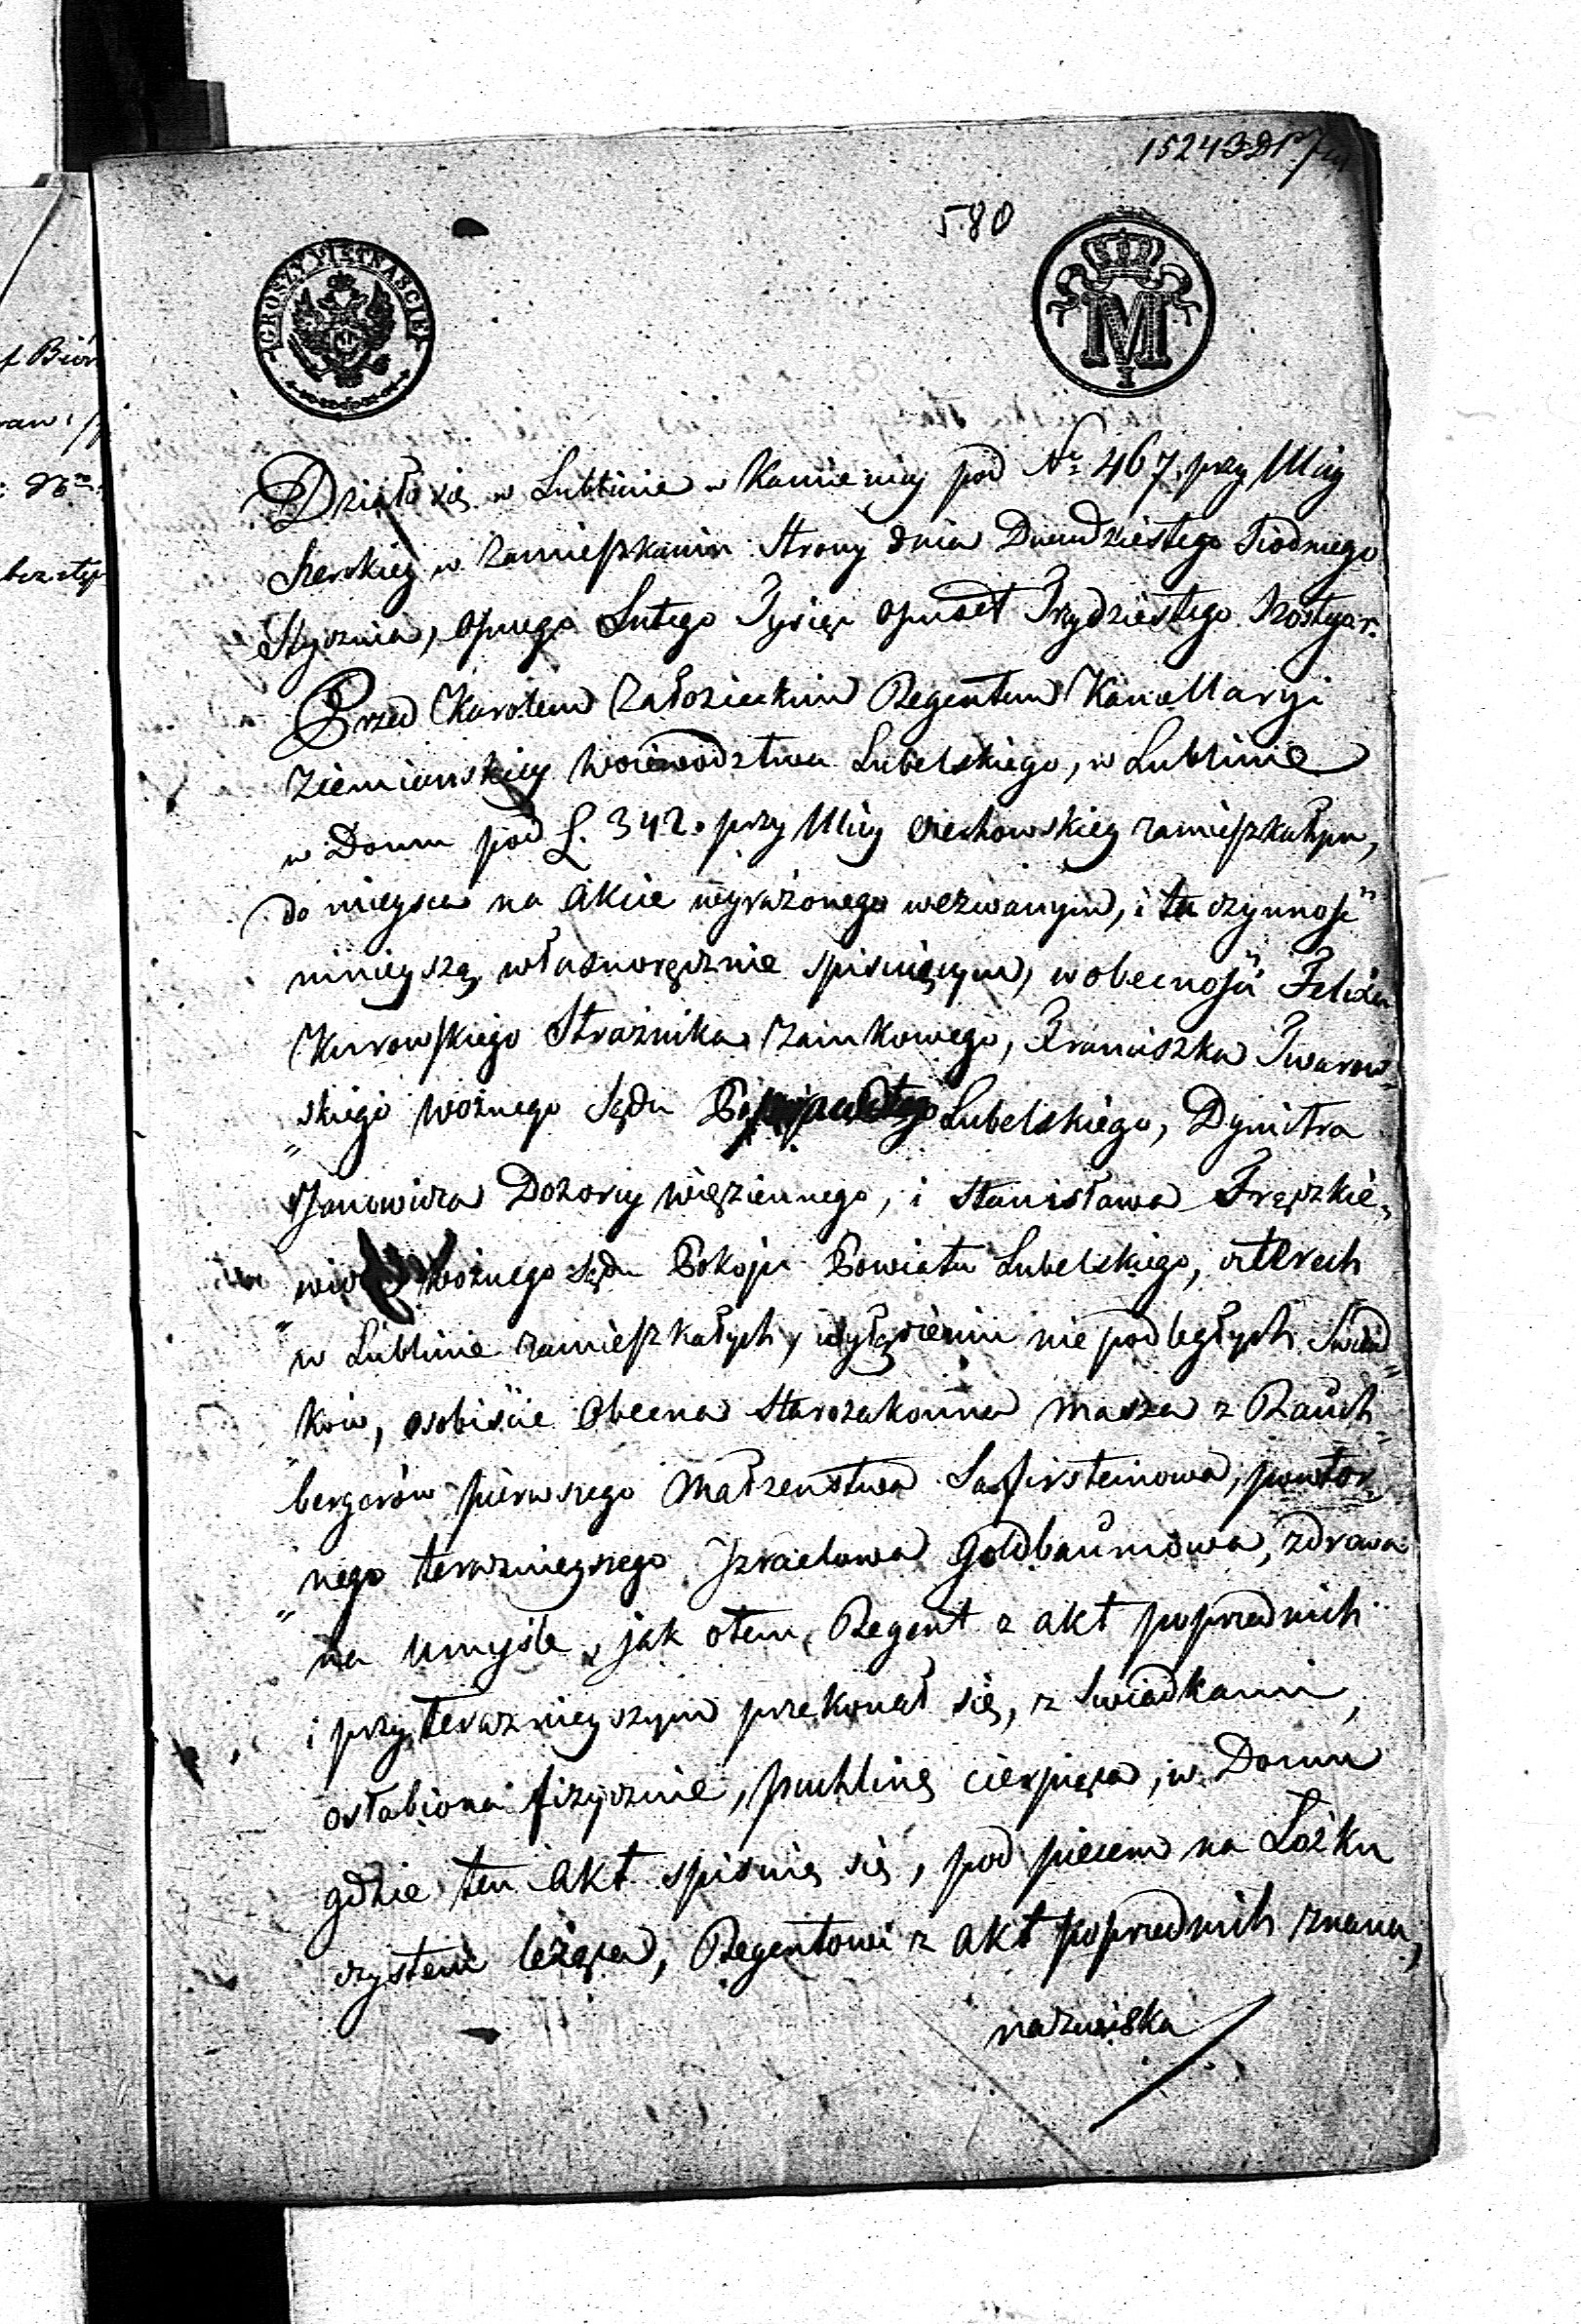 15243
580
GROSZY PIĘTNAŚCIE
M
I
Działo się w Lublinie w Kamienicy pod Nr 467. przy Ulicy
Szerokiey w zamieszkaniu Strony dnia Dwudziestego Siódmego
Stycznia, Osmego Lutego Tysiąc Osmset Trzydziestego Szostego r.
Przed Karolem Załozieckim Regentem Kancellaryi
Ziemianskiey Woiewodztwa Lubelskiego, w Lublinie
w Domu pod L. 342. przy Ulicy zamieszkałym,
do mieysca na Akcie wyrażonego wezwanym, i tu czynność
ninieyszą własnoręcznie spisuiącym, w obecności Felixa
Kurowskiego Strażnika Zamkowego, Franciszka Twarow-
skiego Woznego Sądu Lubelskiego, Dymitra
Janowicza Dozorcy więziennego, i Stanisława Frączkie-
wicza Woznego Sądu Pokoju Powiatu Lubelskiego, czterech
w Lublinie zamieszkałych, wyłączeniu nie podległych Swiad-
ków, osobiście Obecna Starozakonna Masza z Rauch-
bergerów pierwszego Małżeństwa Safirsteinowa, powtor-
nego teraznieyszego Izraelowa Goldbaumowa, zdrowa
na umyśle, jak o tem, Regent z akt poprzednich
i przy teraznieyszym przekonał się, z Swiadkami,
osłabiona fizycznie, puchlinę cierpiąca, w Domu
gdzie ten Akt spisuię się, pod piecem na Łóżku
czystem leżąca, Regentowi z Akt poprzednich znana,
nazwiska